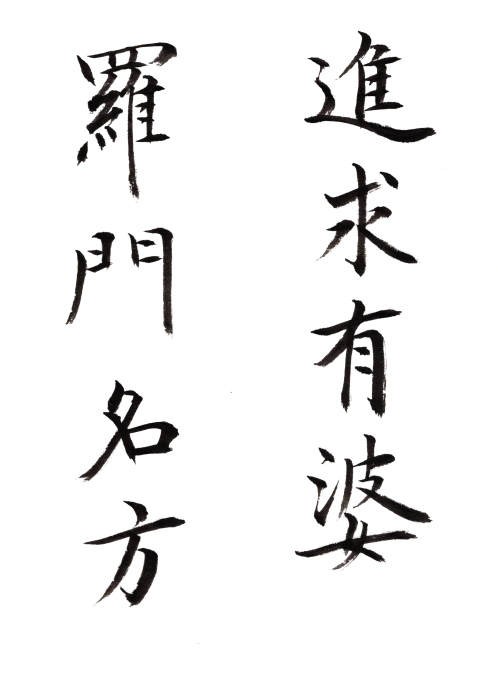 進求有婆
羅門名方